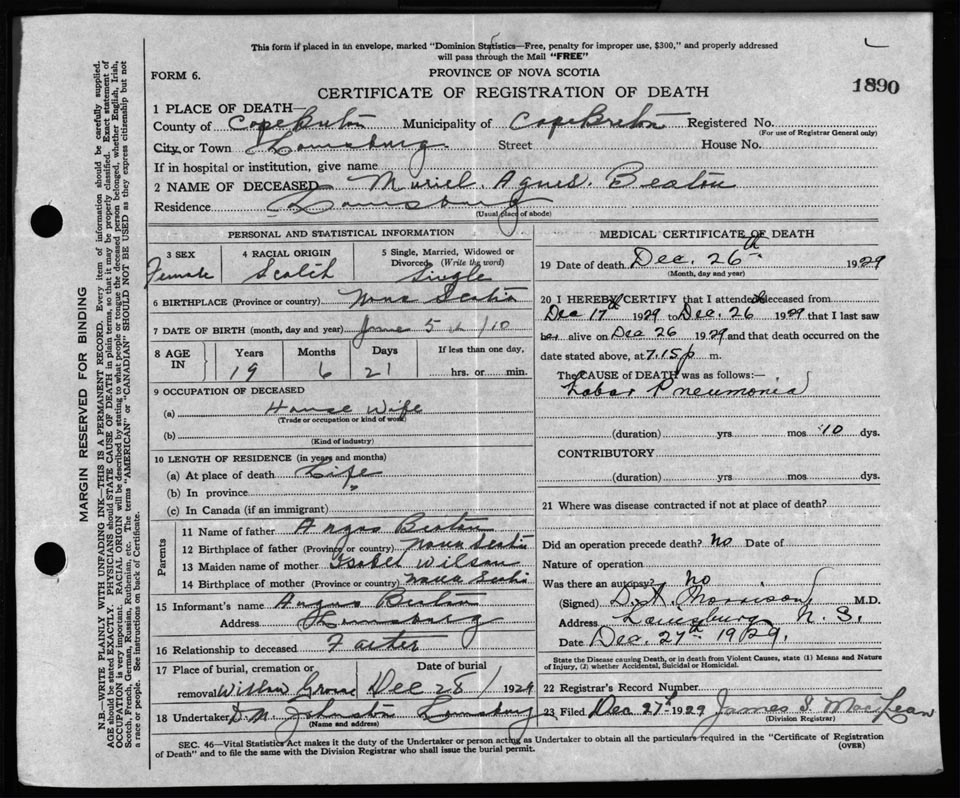 This form if placed in an envelope, marked "Dominion Statistics—Free, penalty for improper use, $300," and properly addressed
will pass through the Mail "FREE"
FORM 6.
PROVINCE OF NOVA SCOTIA
1890
CERTIFICATE OF REGISTRATION OF DEATH
1 PLACE OF DEATH—
County of Cape Breton Municipality of Cape Breton Registered No.
(For use of Registrar General only)
City or Town Louisburg Street House No.
If in hospital or institution, give name
2 NAME OF DECEASED Muriel Agnes Beaton
Residence Louisburg
(Usual place of abode)
PERSONAL AND STATISTICAL INFORMATION
3 SEX 4 RACIAL ORIGIN 5 Single, Married, Widowed or
Divorced (Write the word)
Female Scotch Single
6 BIRTHPLACE (Province or country) Nova Scotia
7 DATE OF BIRTH (month, day and year) June 5th /10
8 AGE IN Years Months Days If less than one day,
19 6 21 hrs. or min.
9 OCCUPATION OF DECEASED
(a) House Wife
(Trade or occupation or kind of work)
(b)
(Kind of industry)
10 LENGTH OF RESIDENCE (in years and months)
(a) At place of death Life
(b) In province "
(c) In Canada (if an immigrant)
Parents
11 Name of father Angus Beaton
12 Birthplace of father (Province or country) Nova Scotia
13 Maiden name of mother Isabel Wilson
14 Birthplace of mother (Province or country) Nova Scotia
15 Informant's name Angus Beaton
Address Louisburg
16 Relationship to deceased Father
17 Place of burial, cremation or Date of burial
removal Willow Grove Dec 28/ 1929
18 Undertaker D.M. Johnston Louisburg
(Name and address)
MEDICAL CERTIFICATE OF DEATH
19 Date of death Dec. 26th 1929
(Month, day and year)
20 I HEREBY CERTIFY that I attended deceased from
Dec 17th 1929 to Dec. 26 1929 that I last saw
her alive on Dec 26 1929 and that death occurred on the
date stated above, at 7.15 p m.
The CAUSE of DEATH was as follows:—
Lobar Pneumonia
(duration) yrs mos 10 dys.
CONTRIBUTORY
(duration) yrs mos dys.
21 Where was disease contracted if not at place of death?
Did an operation precede death? No Date of
Nature of operation
Was there an autopsy? No
(Signed) D.A. Morrison M.D.
Address Louisburg N.S.
Date Dec. 27th 1929.
State the Disease causing Death, or in death from Violent Causes, state (1) Means and Nature
of Injury, (2) whether Accidental, Suicidal or Homicidal.
22 Registrar's Record Number
23 Filed Dec 27th 1929 James S. MacLean
(Division Registrar)
SEC. 46—Vital Statistics Act makes it the duty of the Undertaker or person acting as Undertaker to obtain all the particulars required in the "Certificate of Registration
of Death" and to file the same with the Division Registrar who shall issue the burial permit. (OVER)
MARGIN RESERVED FOR BINDING
N.B—WRITE PLAINLY WITH UNFADING INK—THIS IS A PERMANENT RECORD. Every item of information should be carefully supplied.
AGE should be stated EXACTLY. PHYSICIANS should STATE CAUSE OF DEATH in plain terms, so that it may be properly classified. Exact statement of
OCCUPATION is very important. RACIAL ORIGIN will be described by stating to what people or tongue the deceased person belonged, whether English, Irish,
Scotch, French, German, Russian, Ruthenian, etc. The terms "AMERICAN" or "CANADIAN" SHOULD NOT BE USED as they express citizenship but not
a race or people. See instructions on back of Certificate.